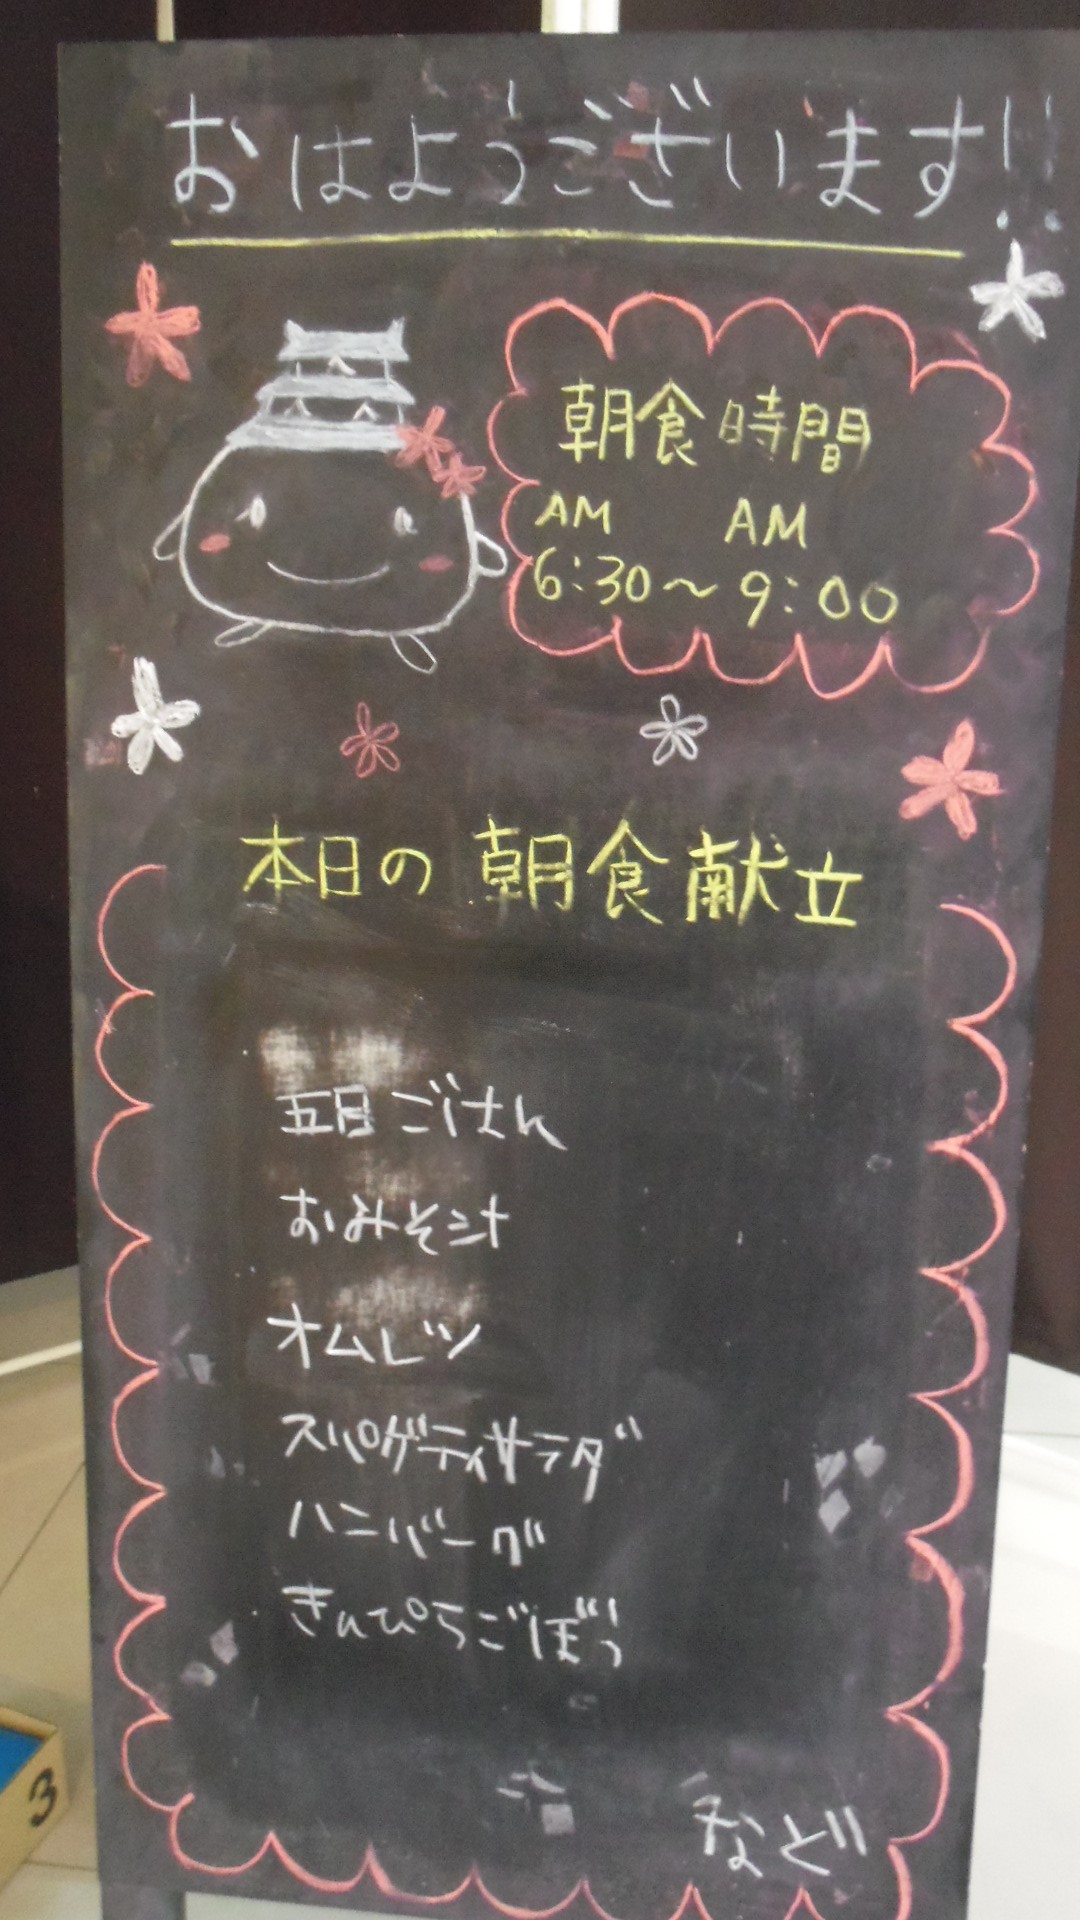 おはようございます!!
朝食時間
AM AM
6:30～9:00
本日の朝食献立
五目ごはん
おみそ汁
オムレツ
スパゲティサラダ
ハンバーグ
きんぴらごぼう
など
3